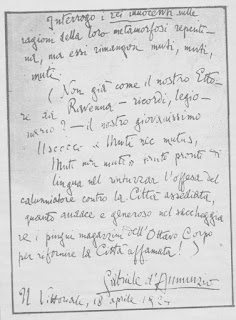 Interrogo i rei innocenti sulle
ragioni della loro metamorfosi repenti-
na, ma essi rimangon muti, muti,
muti.
(Non già come il nostro Etto-
re da Ravenna – ricordi, legio-
nario? – il nostro giovanissimo
"Muti nec mutus,
Muti ma muti" pronto di
lingua nel rintuzzar l'offesa del
calunniatore contro la Città assediata,
quanto audace e generoso nel saccheggia
re i pingui magazzini dell'Ottavo Corpo
per rifornire la Città affamata!)
Gabriele d'Annunzio
Il Vittoriale, 18 aprile 1924